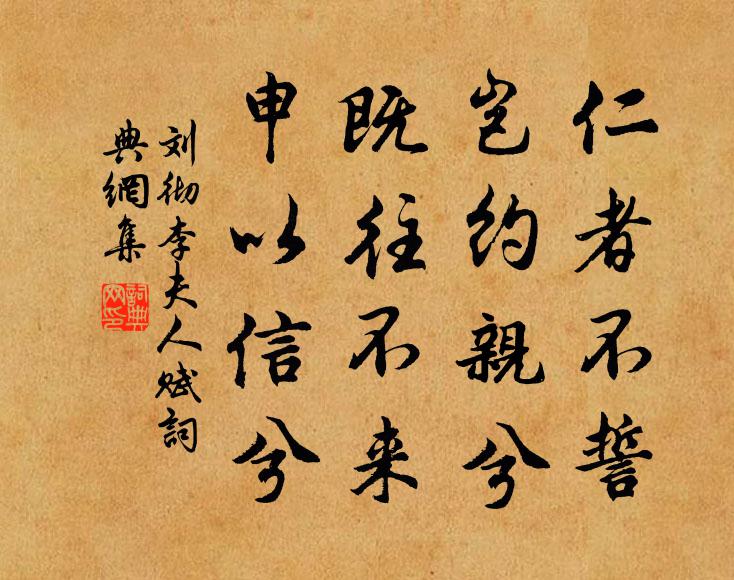 仁者不誓
岂约親兮
既往不来
申以信兮
刘彻李夫人赋詞
典網集
詞典
网印